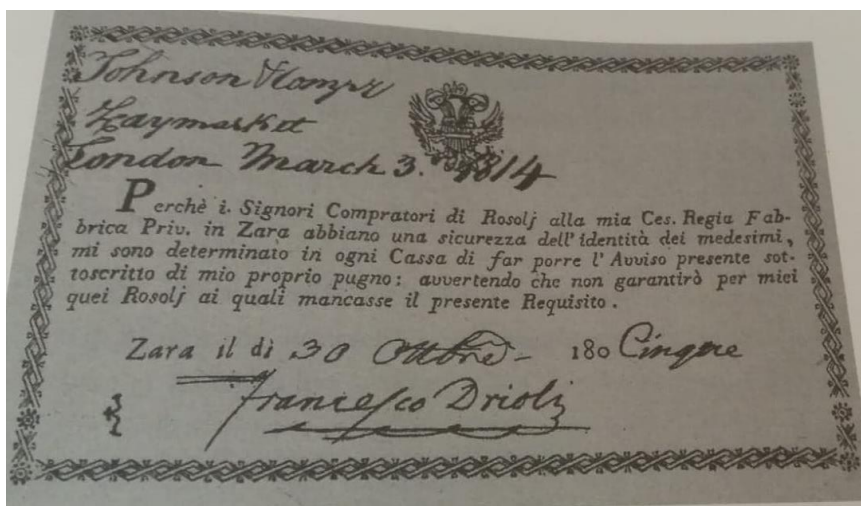 Johnson & Compy
Haymarket
London March 3. 1814
Perchè i. Signori Compratori di Rosolj alla mia Ces. Regia Fab-
brica Priv. in Zara abbiano una sicurezza dell' identità dei medesimi,
mi sono determinato in ogni Cassa di far porre l' Avviso presente sot-
toscritto di mio proprio pugno: avvertendo che non garantirò per miei
quei Rosolj ai quali mancasse il presente Requisito.
Zara il di 30 Ottbre 180 Cinque
Francesco Drioli